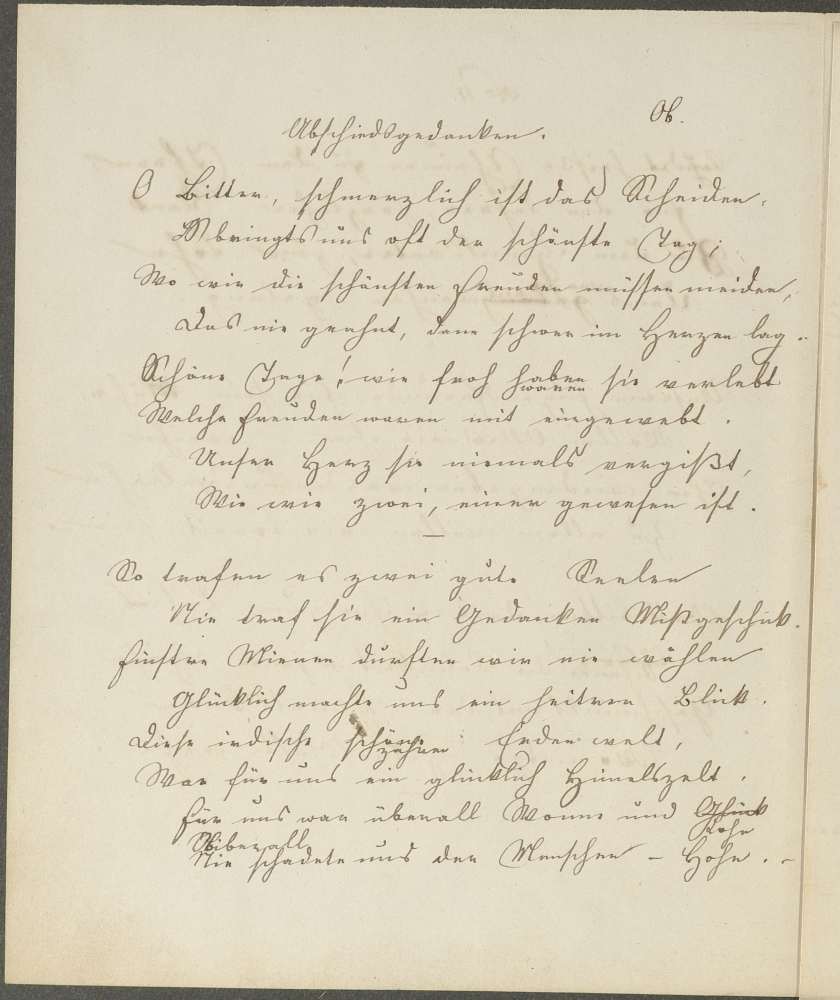 Ob.
Abschiedsgedanken.
O Bitter, schmerzlich ist das Scheiden,
Es bringts uns oft der schönste Tag;
Wo wir die schönsten Freuden müssen meiden,
Das nie geahnt, dann schwer im Herzen lag.
Schöne Tage! wie froh haben sie verlebt
waren
Welche Freuden waren mit eingewebt.
Unser Herz sie niemals vergißt,
Wie wir zwei, einer gewesen ist.
So trafen es zwei gute Seelen
Nie traf sie ein Gedanken Mißgeschick.
Finstre Mienen durften wir nie wählen
Glücklich machte uns ein heitrer Blick.
Diese irdische schöne Erden welt,
War für uns ein glücklich Himelszelt.
Für uns war überall Wonne und Glück
Überall
Nie schadete uns der Menschen – Hohn. –